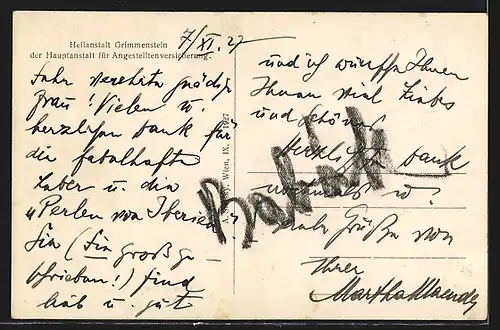 Heilanstalt Grimmenstein
der Hauptanstalt für Angestelltenversicherung.
7/XI. 27
Sehr verehrte gnädige
Frau! Vielen u.
herzlichen Dank für
die fabelhafte
u. die
"Perlen von Iberien"
Sie (Sie großge-
schrieben!) sind
lieb u. gut
und ich wünsche Ihnen
Ihnen viel Liebes
und Schönes
Herzlichen Dank
nochmals u.
Grüße von
Ihrer
Martha
Wien, IX. 1927